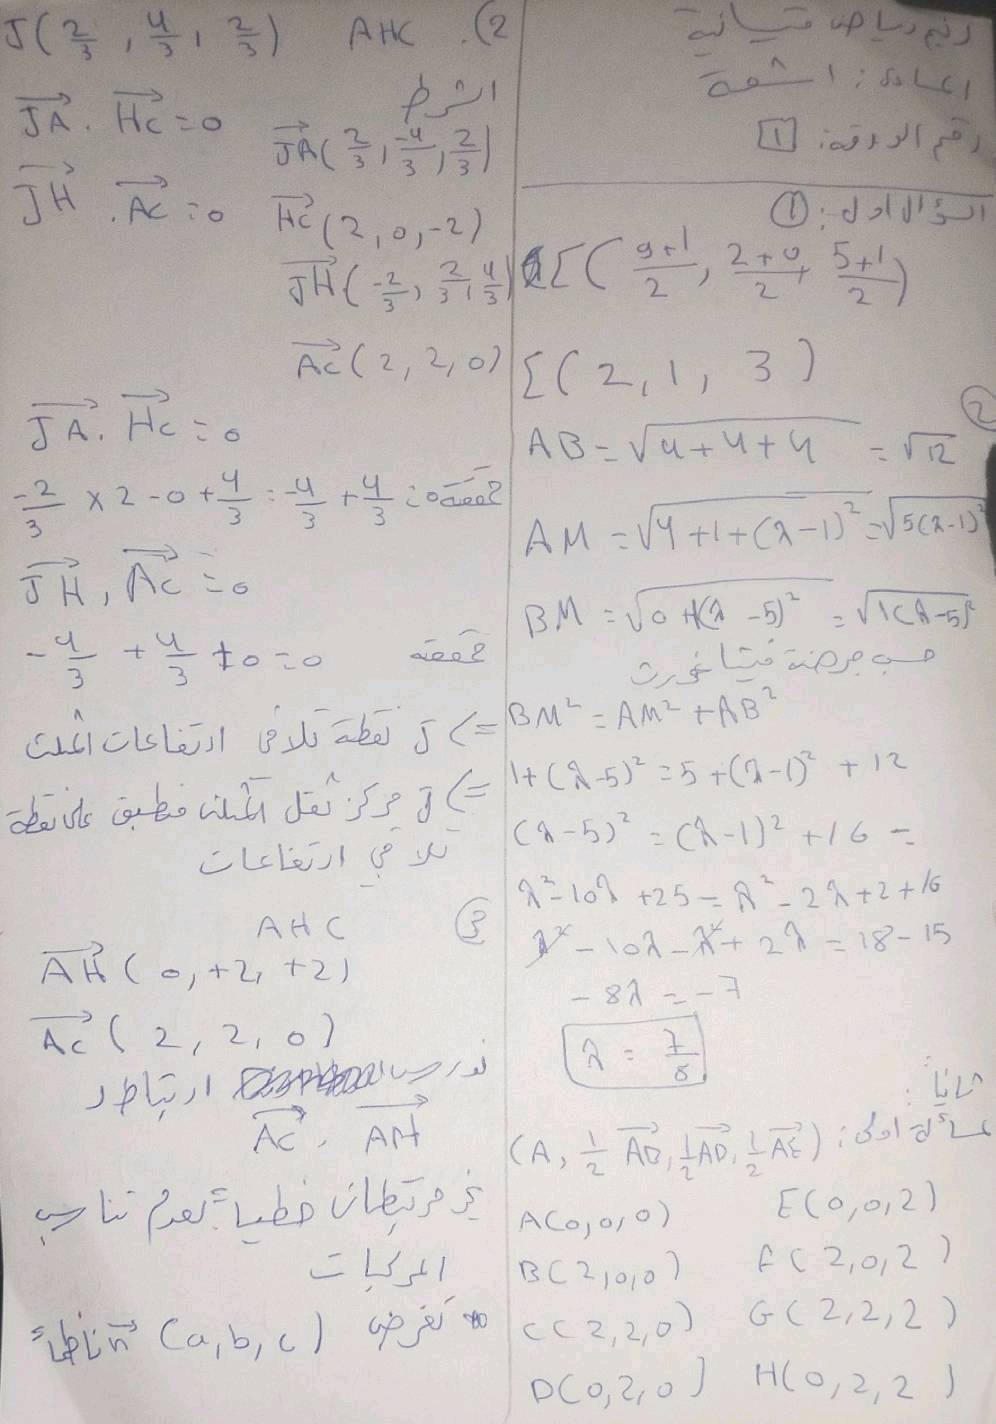 رقم الورقة: 1
السؤال الاول: 1
I( 9+1/2 , 2+0/2 , 5+1/2 )
I( 2, 1, 3 )
2
AB = √4+4+4 = √12
AM = √4+1+(λ-1)² = √5(λ-1)²
BM = √0+1(λ-5)² = √1(λ-5)²
حسب مبرهنة فيثاغورث
BM² = AM² + AB²
1+(λ-5)² = 5+(λ-1)² + 12
(λ-5)² = (λ-1)² + 16 =
λ²-10λ +25 = λ²-2λ+2+16
λ²-10λ-λ²+2λ = 18-15
-8λ = -7
λ = 7/8
ثانياً:
مسألة اولى:
(A, 1/2 AB, 1/2 AD, 1/2 AE)
A(0,0,0) E(0,0,2)
B(2,0,0) F(2,0,2)
C(2,2,0) G(2,2,2)
D(0,2,0) H(0,2,2)
2). AHC J(2/3, 4/3, 2/3)
الشرط
JA . HC = 0 JA(2/3, -4/3, 2/3)
JH . AC = 0 HC(2,0,-2)
JH(-2/3, 2/3, 4/3)
AC(2,2,0)
JA . HC = 0
-2/3 × 2 -0 +4/3 = -4/3 + 4/3 = 0 محققة
JH , AC = 0
-4/3 + 4/3 +0 = 0 محققة
=> J نقطة تلاقي ارتفاعات المثلث
=> J مركز ثقل المثلث منطبق على نقطة
تلاقي ارتفاعات
3 AHC
AH( 0, +2, +2)
AC( 2, 2, 0)
ندرس ارتباط
AC , AH
غير مرتبطان خطياً لعدم تناسب
المركبات
نفرض n(a,b,c) ناظماً